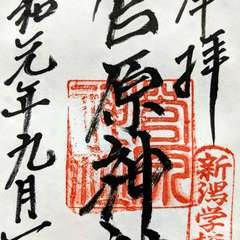 奉拝
菅原神
和元年九月一
新潟学